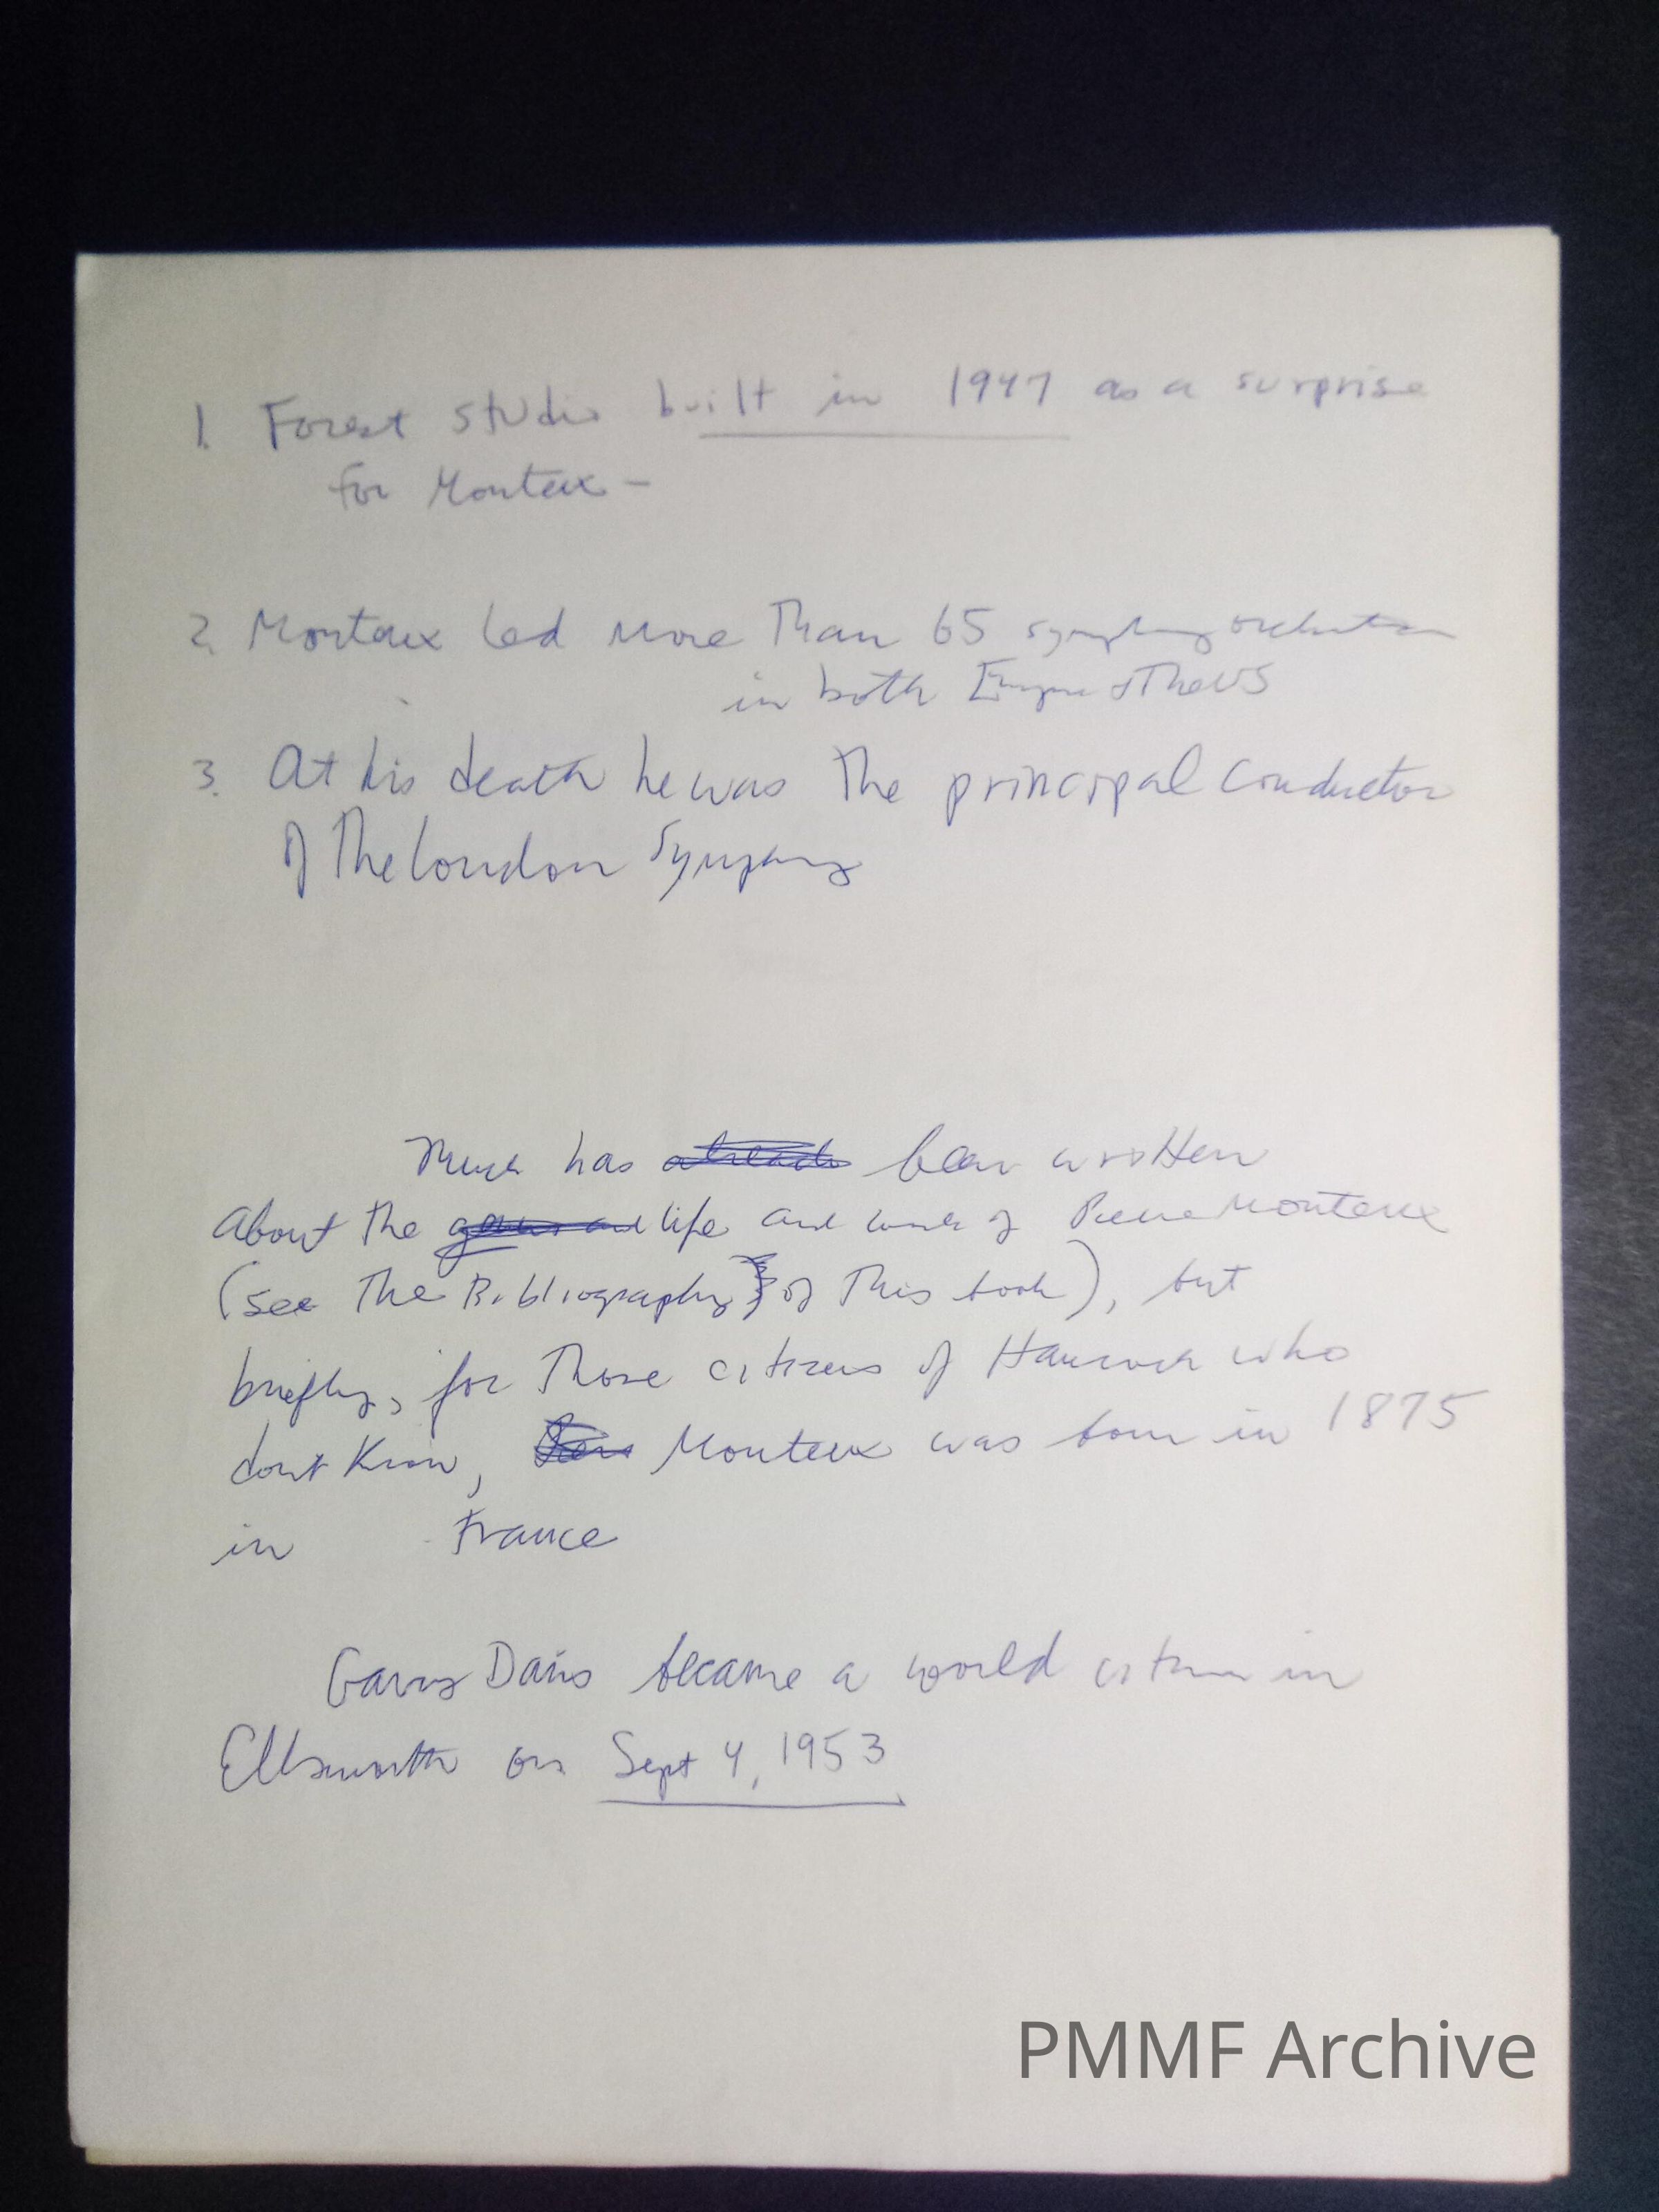 1. Forest Studio built in 1947 as a surprise
for Monteux –
2. Monteux led more Than 65 symphony orchestras
in both Europe & The US
3. At his death he was The principal conductor
of The London Symphony
Much has already been written
about the genius and life and work of Pierre Monteux
(see The Bibliography) of This book), but
briefly, for Those citizens of Hancock who
dont Know, Monteux was born in 1875
in France
Garry Davis became a world citizen in
Ellsworth on Sept 4, 1953
PMMF Archive